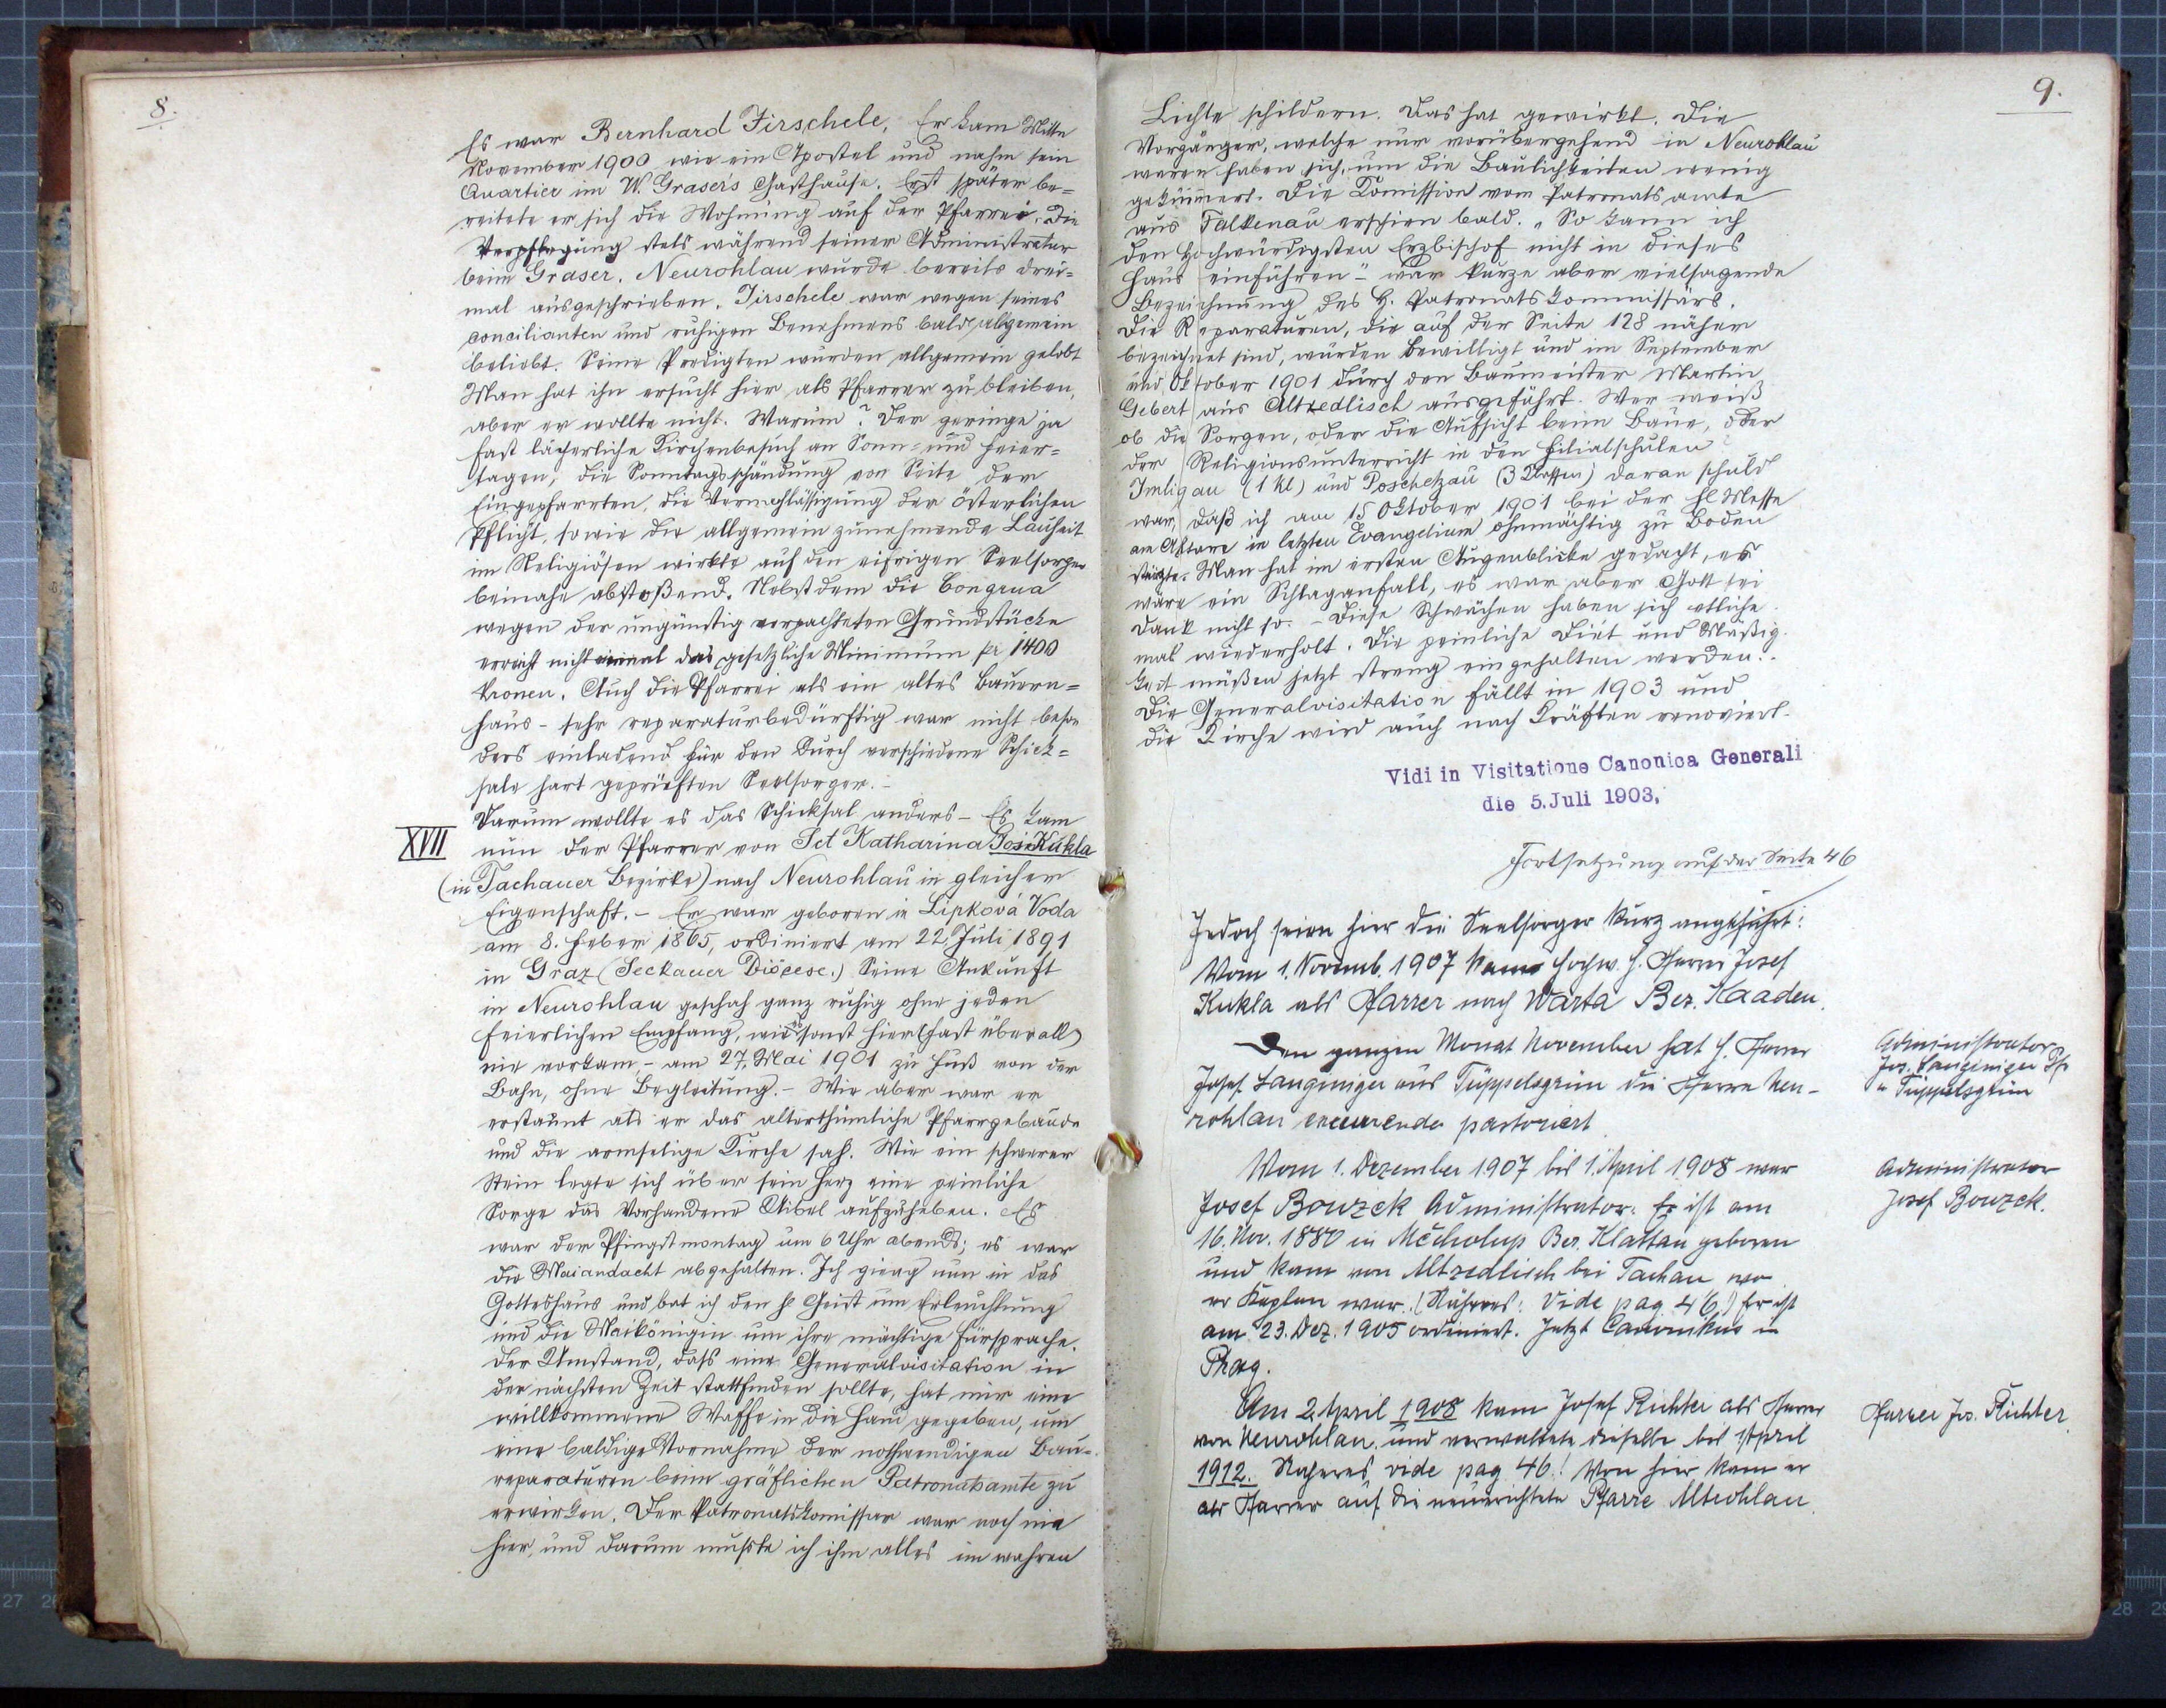 8.
Es war Bernhard Jirschele. Er kam Mitte
November 1900 wie ein Apostel und nahm sein
Quartier im W. Graser's Gasthause. Erst später be=
reitete er sich die Wohnung auf der Pfarrei. Die
Verpflegung stets während seiner Administratur
beim Graser. Neurohlau wurde bereits drei=
mal ausgeschrieben. Jirschele war wegen seines
concilianten und ruhigen Benehmens bald allgemein
beliebt. Seine Predigten wurden allgemein gelobt
Man hat ihn ersucht hier als Pfarrer zu bleiben,
aber er wollte nicht. Warum? Der geringe ja
fast lächerliche Kirchenbesuch an Sonn= und Feier=
tagen, die Sonntagsschändung von Seite der
Eingepfarrten, die Vernachlässigung der österlichen
Pflicht, sowie die allgemein zunehmende Lauheit
im Religiösen wirkte auf den eifrigen Seelsorger
beinahe abstoßend. Nebstdem die Congrua
wegen der ungünstig verpachteten Grundstücke
erreicht nicht einmal das gesetzliche Minimum pr 1400
Kronen. Auch die Pfarrei als ein altes Bauern=
haus - sehr reparaturbedürftig war nicht beson
ders einladend für den durch verschiedene Schick=
sale hart geprüften Seelsorger. -
Darum wollte es das Schicksal anders - Es kam
XVII nun der Pfarrer von Sct Katharina Jos. Kukla
(in Tachauer Bezirke) nach Neurohlau in gleicher
Eigenschaft. - Er war geboren in Lipková Voda
am 8. Feber 1865, ordiniert am 22. Juli 1891
in Graz (Seckauer Diöcese.) Seine Ankunft
in Neurohlau geschah ganz ruhig ohne jeden
feierlichen Empfang, wie es sonst hier (fast überall)
nie vorkam, - am 27. Mai 1901 zu Fuß von der
Bahn, ohne Begleitung. - Wie aber war er
erstaunt als er das alterthümliche Pfarrgebäude
und die armselige Kirche sah. Wie ein schwerer
Stein legte sich über sein Herz eine peinliche
Sorge das Vorhandene Übel aufzuheben. Es
war der Pfingstmontag um 6 Uhr abends; es war
die Maiandacht abgehalten. Ich gieng nun in das
Gotteshaus und bat ich den hl Geist um Erleuchtung
und die Maikönigin um ihre mächtige Fürsprache.
Der Umstand, dass eine Generalvisitation in
der nächsten Zeit stattfinden sollte, hat mir eine
willkommene Waffe in die Hand gegeben, um
eine baldige Vornahme der nothwendigen Bau=
reparaturen beim gräflichen Patronatsamte zu
erwirken. Der Patronatskomissär war noch nie
hier, und darum mußte ich ihm alles im wahren
9.
Lichte schildern. Das hat gewirkt. Die
Vorgänger, welche nur vorübergehend in Neurohlau
waren haben sich um die Baulichkeiten wenig
gekümmert. Die Komission vom Patronatsamte
aus Falkenau erschien bald. "So kann ich
den Hochwürdigsten Erzbischof nicht in dieses
Haus einführen" - war kurze aber vielsagende
Bezeichnung des H. Patronatskommissärs.
Die Reparaturen, die auf der Seite 128 näher
bezeichnet sind, wurden bewilligt und im September
und Oktober 1901 durch den Baumeister Martin
Gebert aus Altzedlisch ausgeführt. Wer weiß
ob die Sorgen, oder die Aufsicht beim Baue, oder
der Religionsunterricht in den Filialschulen
Imligau (1 Kl) und Poschetzau (3 Klassen) daran schuld
war, daß ich am 15 Oktober 1901 bei der hl Messe
am Altare in letzten Evangelium ohnmächtig zu Boden
stürzte. Man hat im ersten Augenblicke gedacht, es
wäre ein Schlaganfall, es war aber Gott sei
Dank nicht so. - Diese Schwächen haben sich etliche
mal wiederholt. Die peinliche Diät und Mäßig
keit müßen jetzt streng eingehalten werden. -
Die Generalvisitation fällt in 1903 und
die Kirche wird auch nach Kräften renoviert.
Vidi in Visitatione Canonica Generali
die 5. Juli 1903,
Fortsetzung auf der Seite 46
Jedoch seien hier die Seelsorger kurz angeführt:
Vom 1. Novemb. 1907 kam hochw. H. Pfarrer Josef
Kukla als Pfarrer nach Warta Bez. Kaaden.
Den ganzen Monat November hat H. Pfarrer
Josef Langeniger aus Tüppelsgrün die Pfarre Neu-
rohlau excurrendo pastoriert
Administrator
Jos. Langeniger Pfr
in Tüppelsgrün
Vom 1. Dezember 1907 bis 1. April 1908 war
Josef Bouzek Administrator. Er ist am
16. Nov. 1880 in Měcholup Bez. Klattau geboren
und kam von Altzedlisch bei Tachau wo
er Kaplan war. (Näheres: vide pag. 46.) Er ist
am 23. Dez. 1905 ordiniert. Jetzt Canonikus in
Prag.
Administrator
Josef Bouzek.
Am 2. April 1908 kam Josef Richter als Pfarrer
von Neurohlau und verwaltete dieselbe bis 1. April
1912. Näheres vide pag 46.! Von hier kam er
als Pfarrer auf die neuerrichtete Pfarre Altrohlau.
Pfarrer Jos. Richter